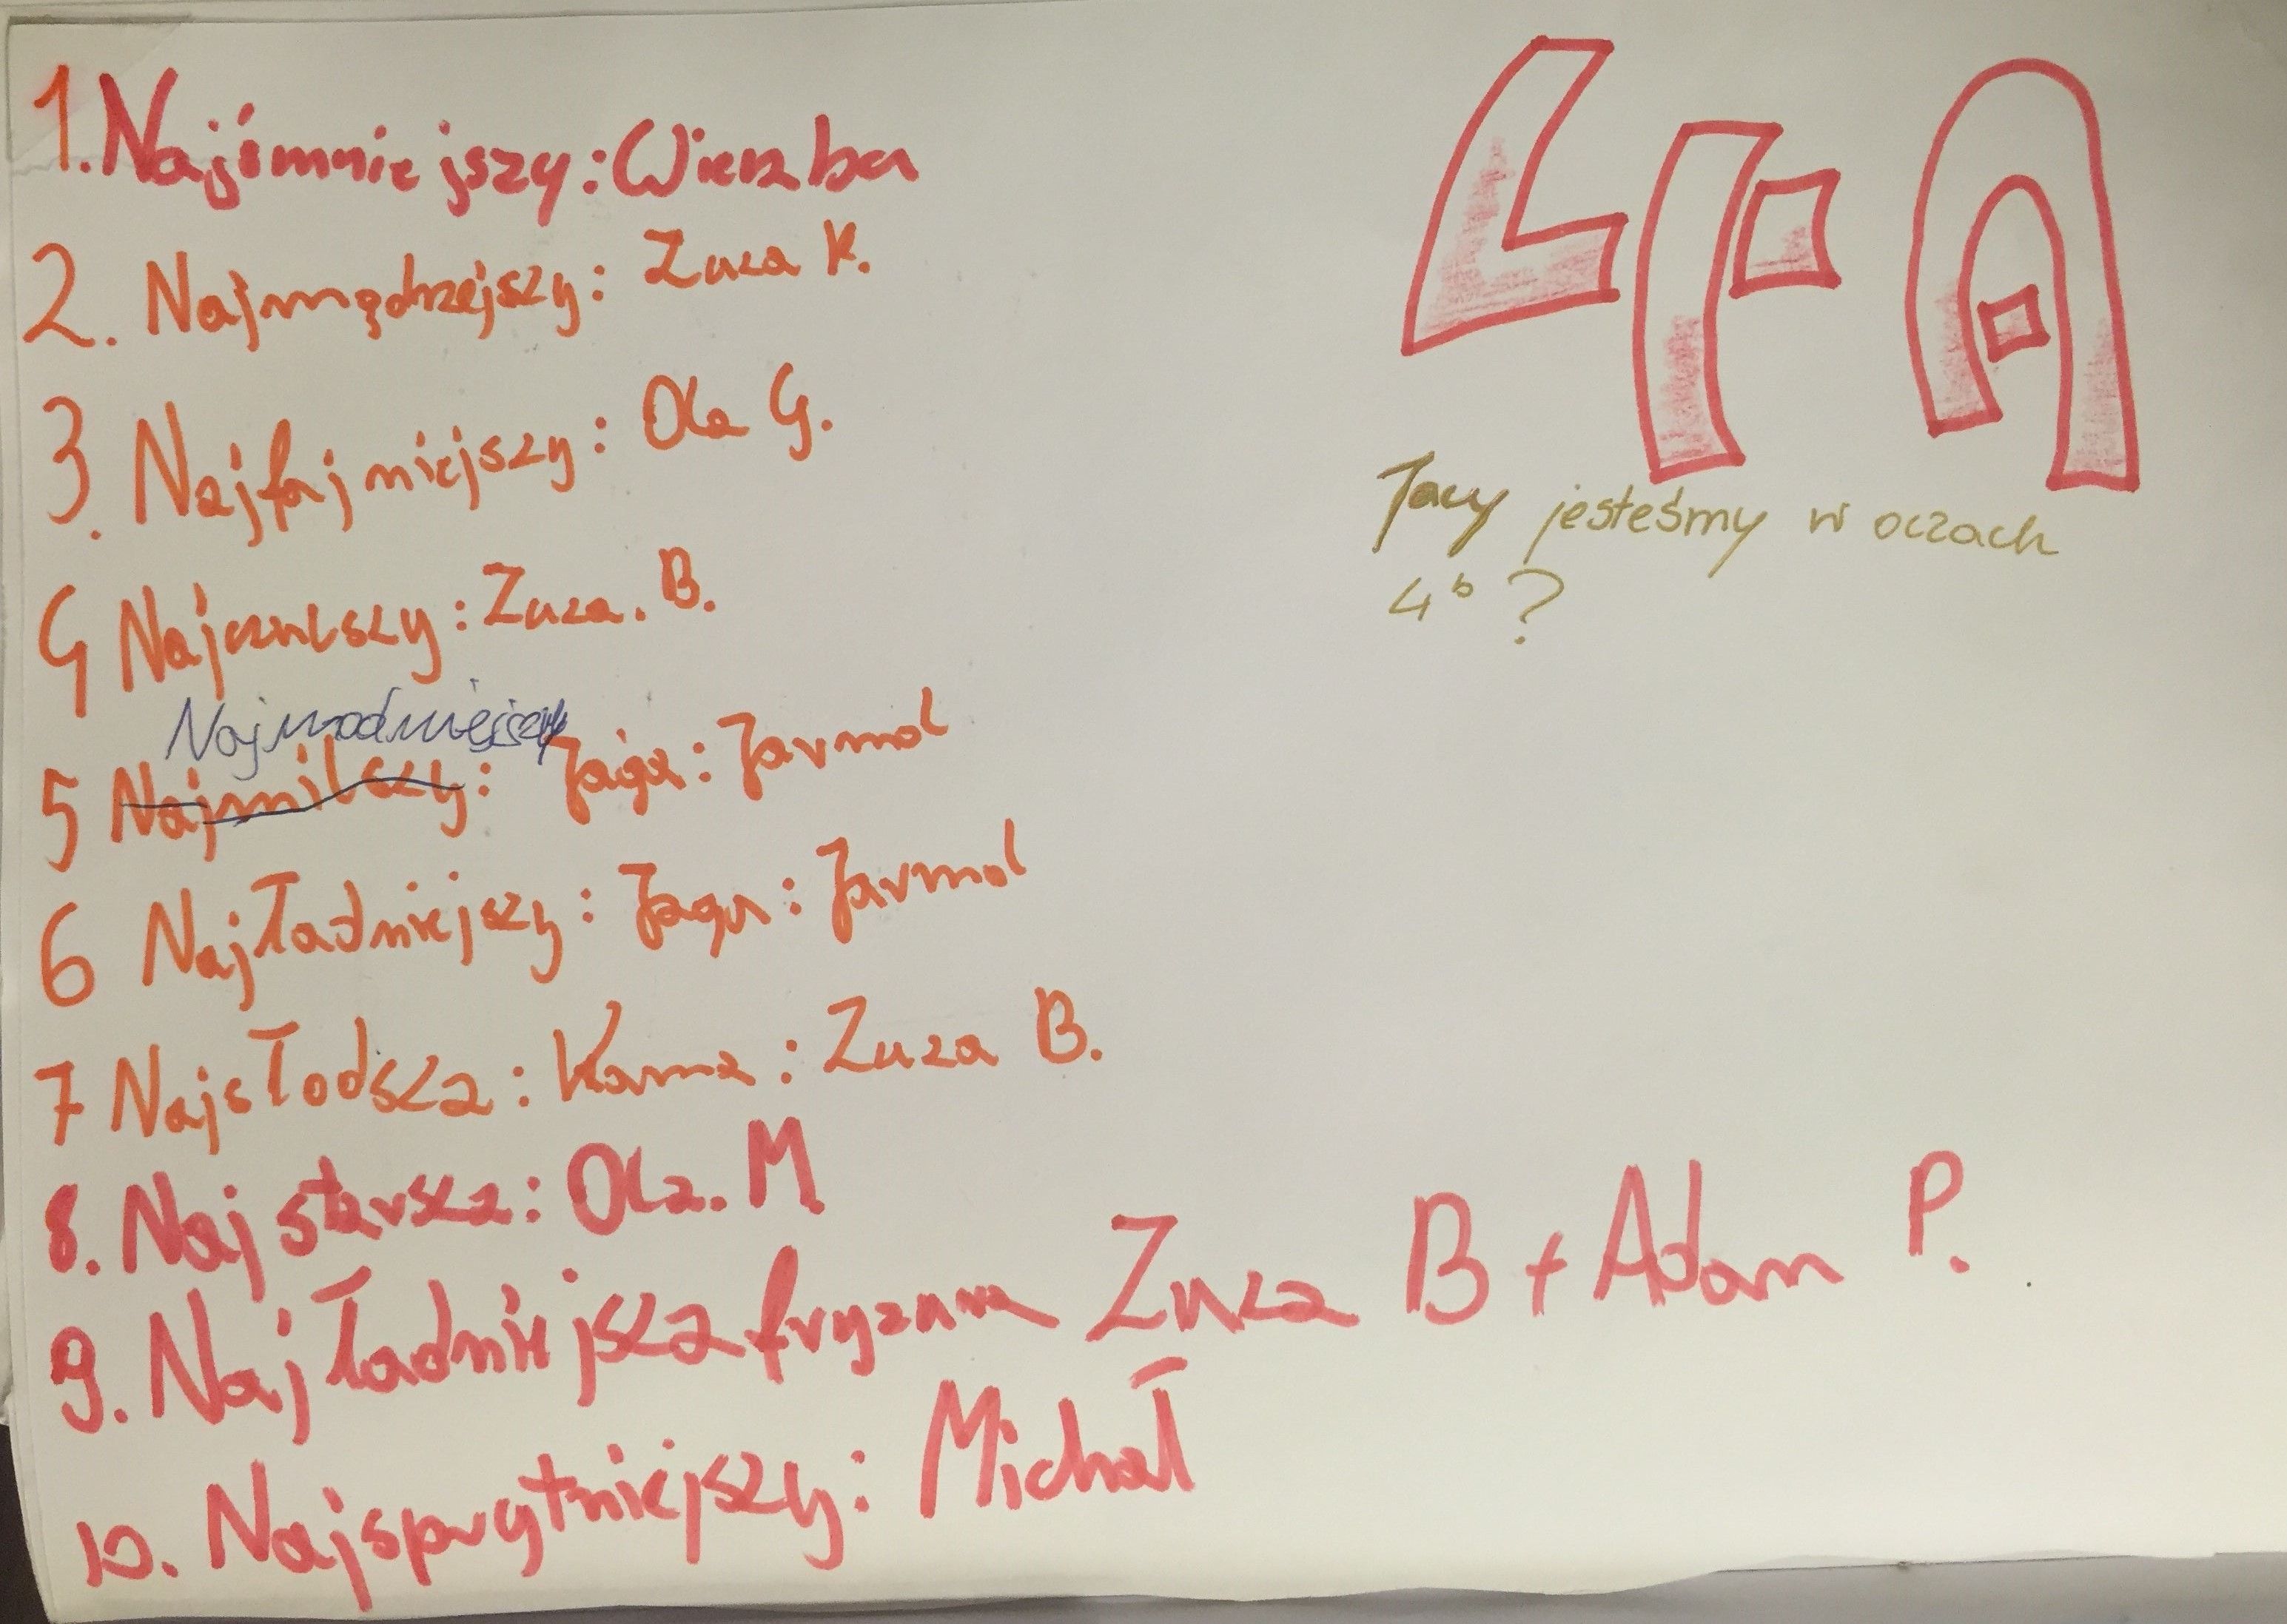 4A
Jacy jesteśmy w oczach
4b ?
1. Najśmniejszy: Wierzba
2. Najmądrzejszy: Zuza K.
3. Najfajniejszy: Ola G.
4 Najczulszy: Zuza. B.
Najmodniejszy
5 Najmilszy: Jaga: Jarmol
6 Najładniejszy: Jaga: Jarmol
7 Najsłodsza: Kama: Zuza B.
8. Najstarsza: Ola. M
9. Najładniejsza fryzura Zuza B + Adam P.
10. Najsprytniejszy: Michał